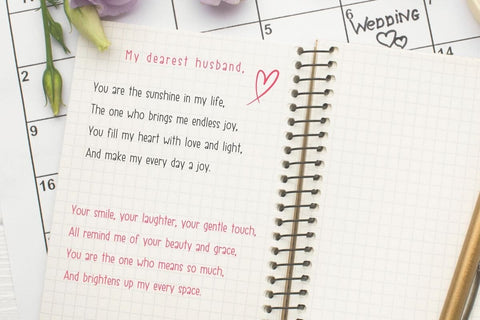 5
6
WEDDiNG
14
2
9
16
My dearest husband,
You are the sunshine in my life,
The one who brings me endless joy,
You fill my heart with love and light,
And make my every day a joy.
Your smile, your laughter, your gentle touch,
All remind me of your beauty and grace,
You are the one who means so much,
And brightens up my every space.